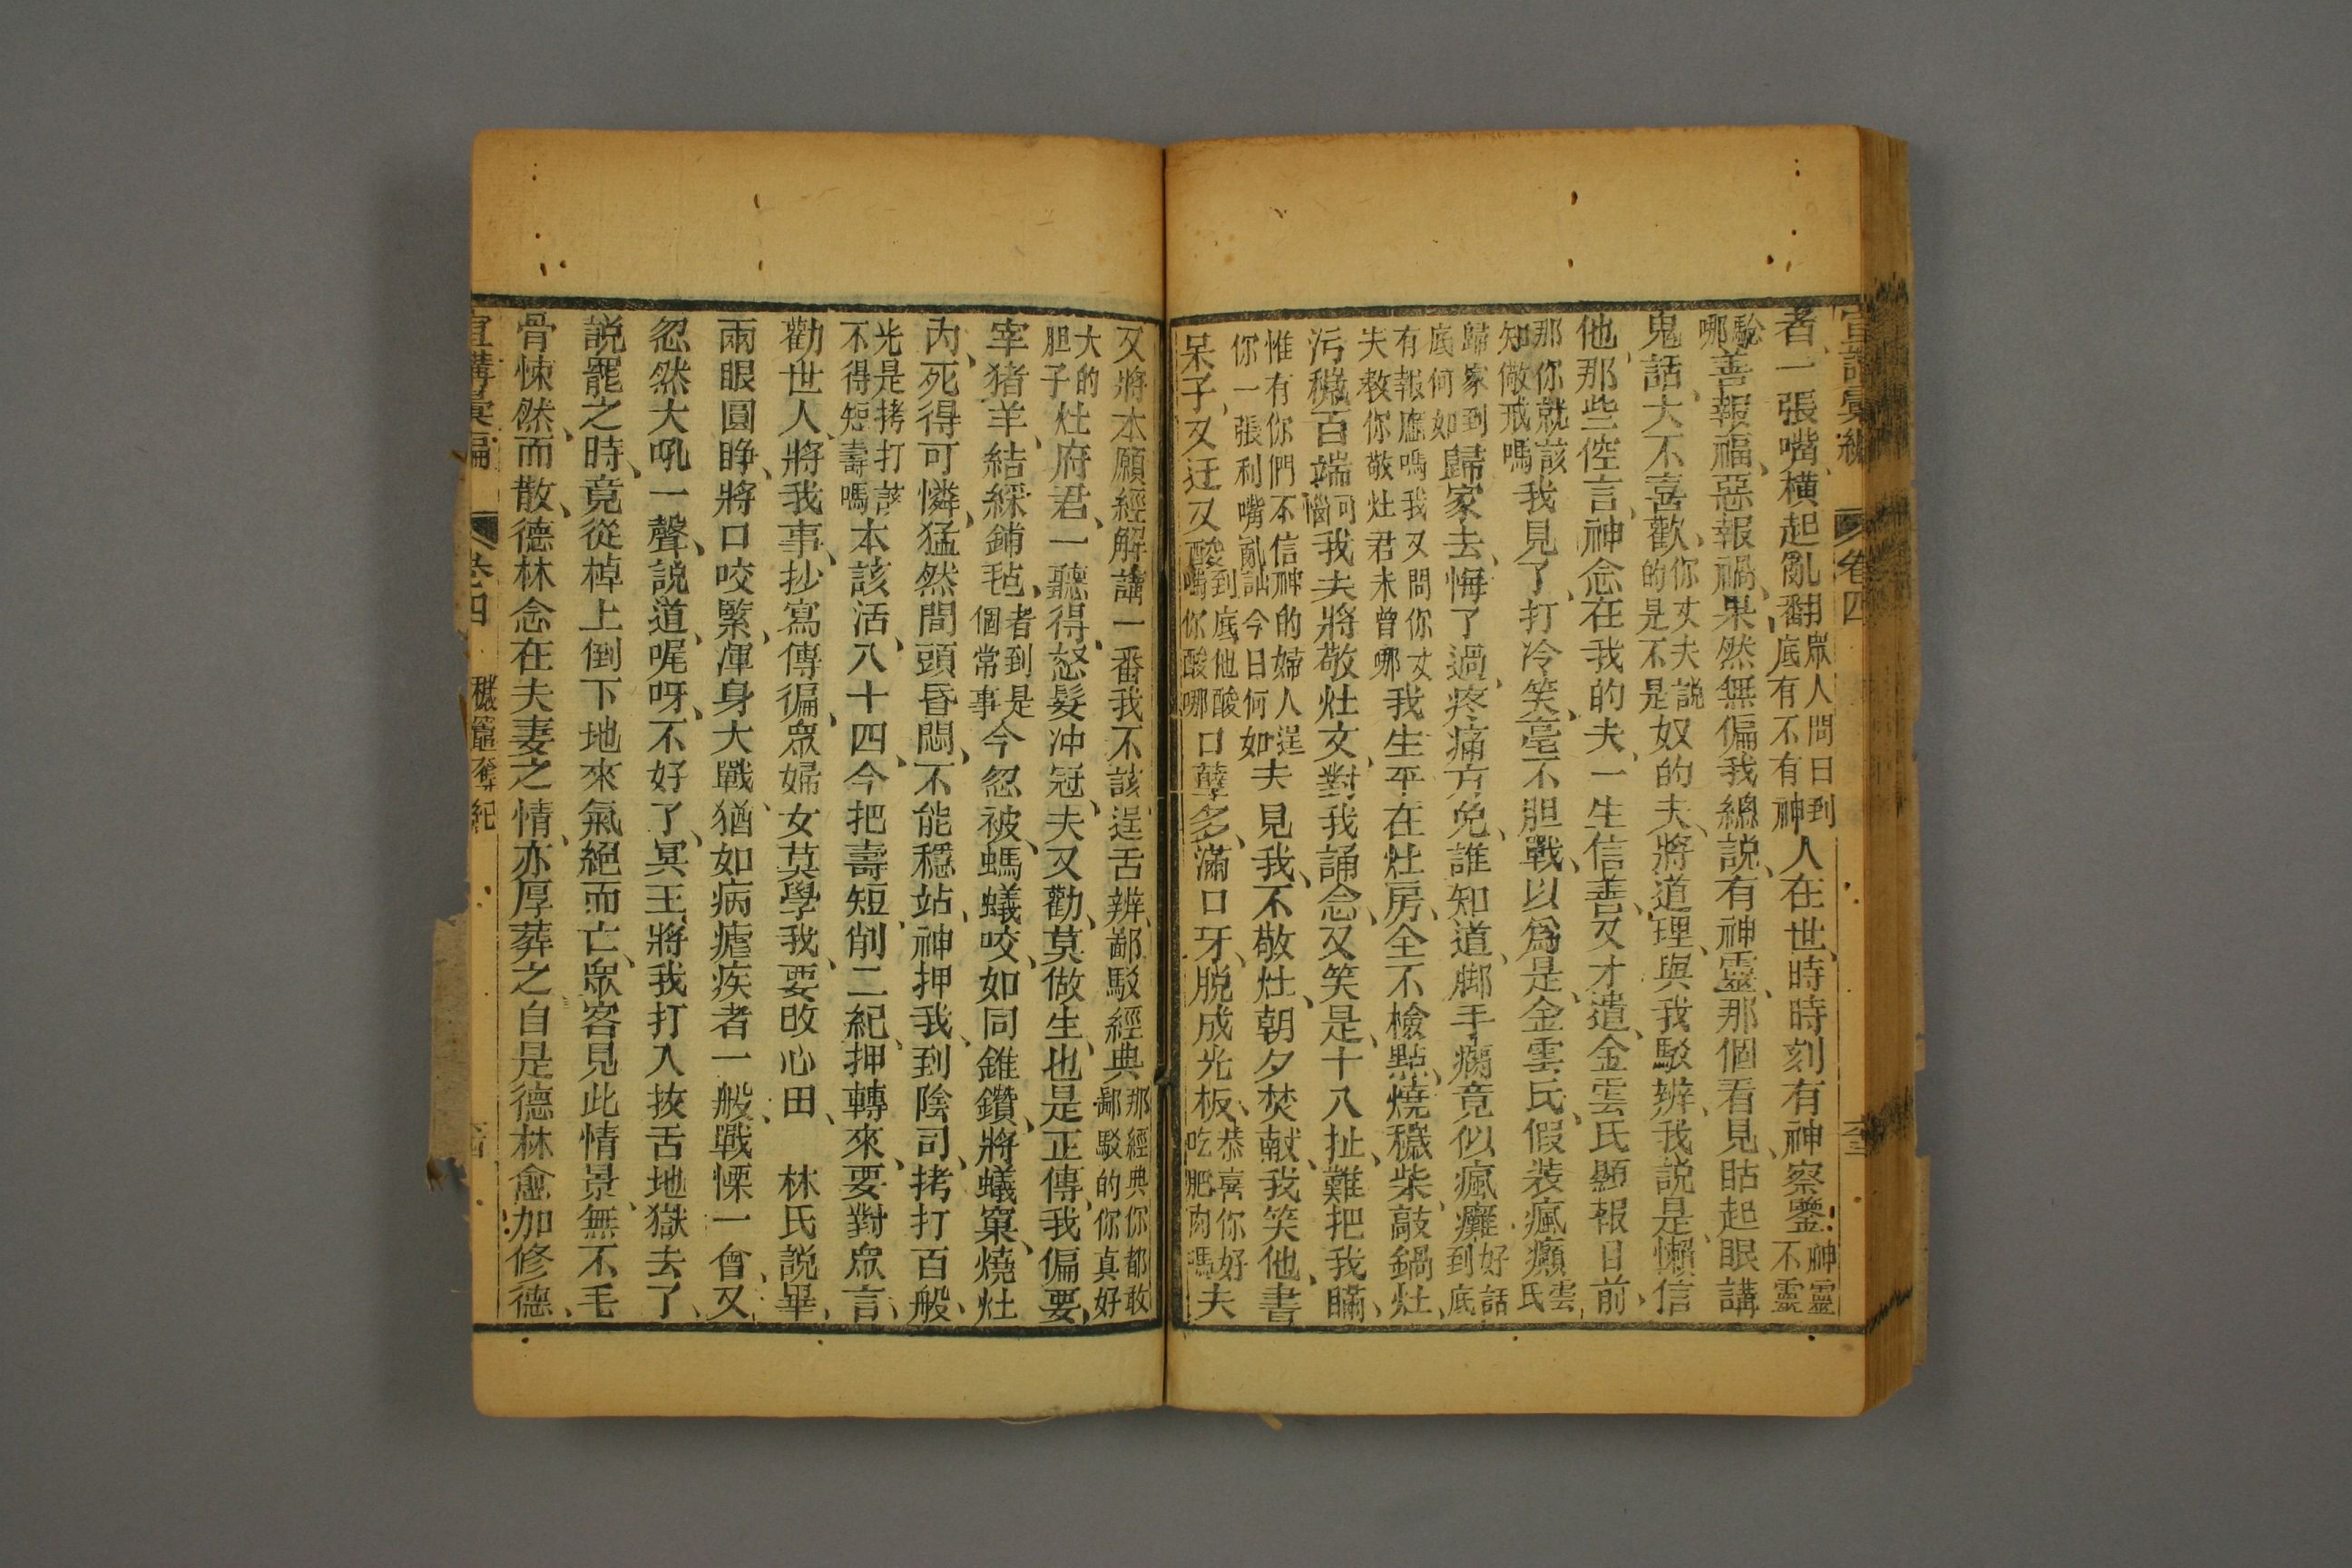 宣講彙編 卷四
者、一張嘴、橫起亂翻、眾人問曰到底有不有神人在世、時時刻有神察鑒、神靈不靈
驗哪善報福、惡報禍、果然無偏我總說、有神靈、那個看見、眙起眼講
鬼話、大不喜歡、你丈夫說的是不是奴的夫、將道理、與我駁辨、我說是、懶信
他、那些倥言、神念在我的夫、一生信善、又才遣、金雲氏顯報日前、
那你就該知儆戒嗎我見了、打冷笑、毫不胆戰、以為是、金雲氏、假裝瘋癲、雲氏
歸家到底何如歸家去、悔了過、疼痛方免、誰知道、脚手癆竟似瘋癱、好話到底
有報應嗎我又問你丈夫教你敬灶君未曾哪我生平在灶房、全不檢點、燒穢柴、敲鍋灶、
污穢百端可惱我夫將敬灶文、對我誦念、又笑是、十八扯、難把我瞞、
惟有你們不信神的婦人逞你一張利嘴亂訕今日何如夫見我、不敬灶、朝夕焚献、我笑他、書
呆子、又迂又酸到底他酸嗎你酸哪口孽多、滿口牙、脫成光板、恭喜你好吃肥肉嗎夫
又將本願經解講一番我不該逞舌辨、鄙駁經典那經典你都敢鄙駁的你真好
大的胆子灶府君、一聽得、怒髮冲冠、夫又勸、莫做生、也是正傳、我偏要、
宰猪羊、結綵鋪毡、者到是個常事今忽被、螞蟻咬、如同錐鑽、將蟻窠、燒灶
內、死得可憐、猛然間頭昏悶、不能穩站、神押我、到陰司、拷打百般、
光是拷打該不得短壽嗎本該活、八十四、今把壽短、削二紀、押轉來、要對眾言、
勸世人、將我事、抄寫傳徧、眾婦女莫學我、要改心田 林氏說畢、
兩眼圓睁、將口咬緊、渾身大戰、猶如病瘧疾者一般、戰慄一會、又
忽然大吼一聲、說道、哫呀、不好了、冥王將我打入拔舌地獄去了、
說罷之時、竟從棹上倒下地來氣絕而亡、眾客見此情景、無不毛
骨悚然、而散、德林念在夫妻之情、亦厚葬之自是德林愈加修德、
宣講彙編 卷四 穢竈奪紀